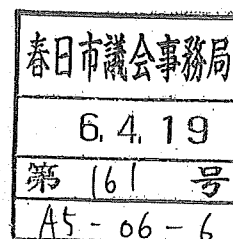 春日市議会事務局
6.4.19
第 161 号
A5-06-6